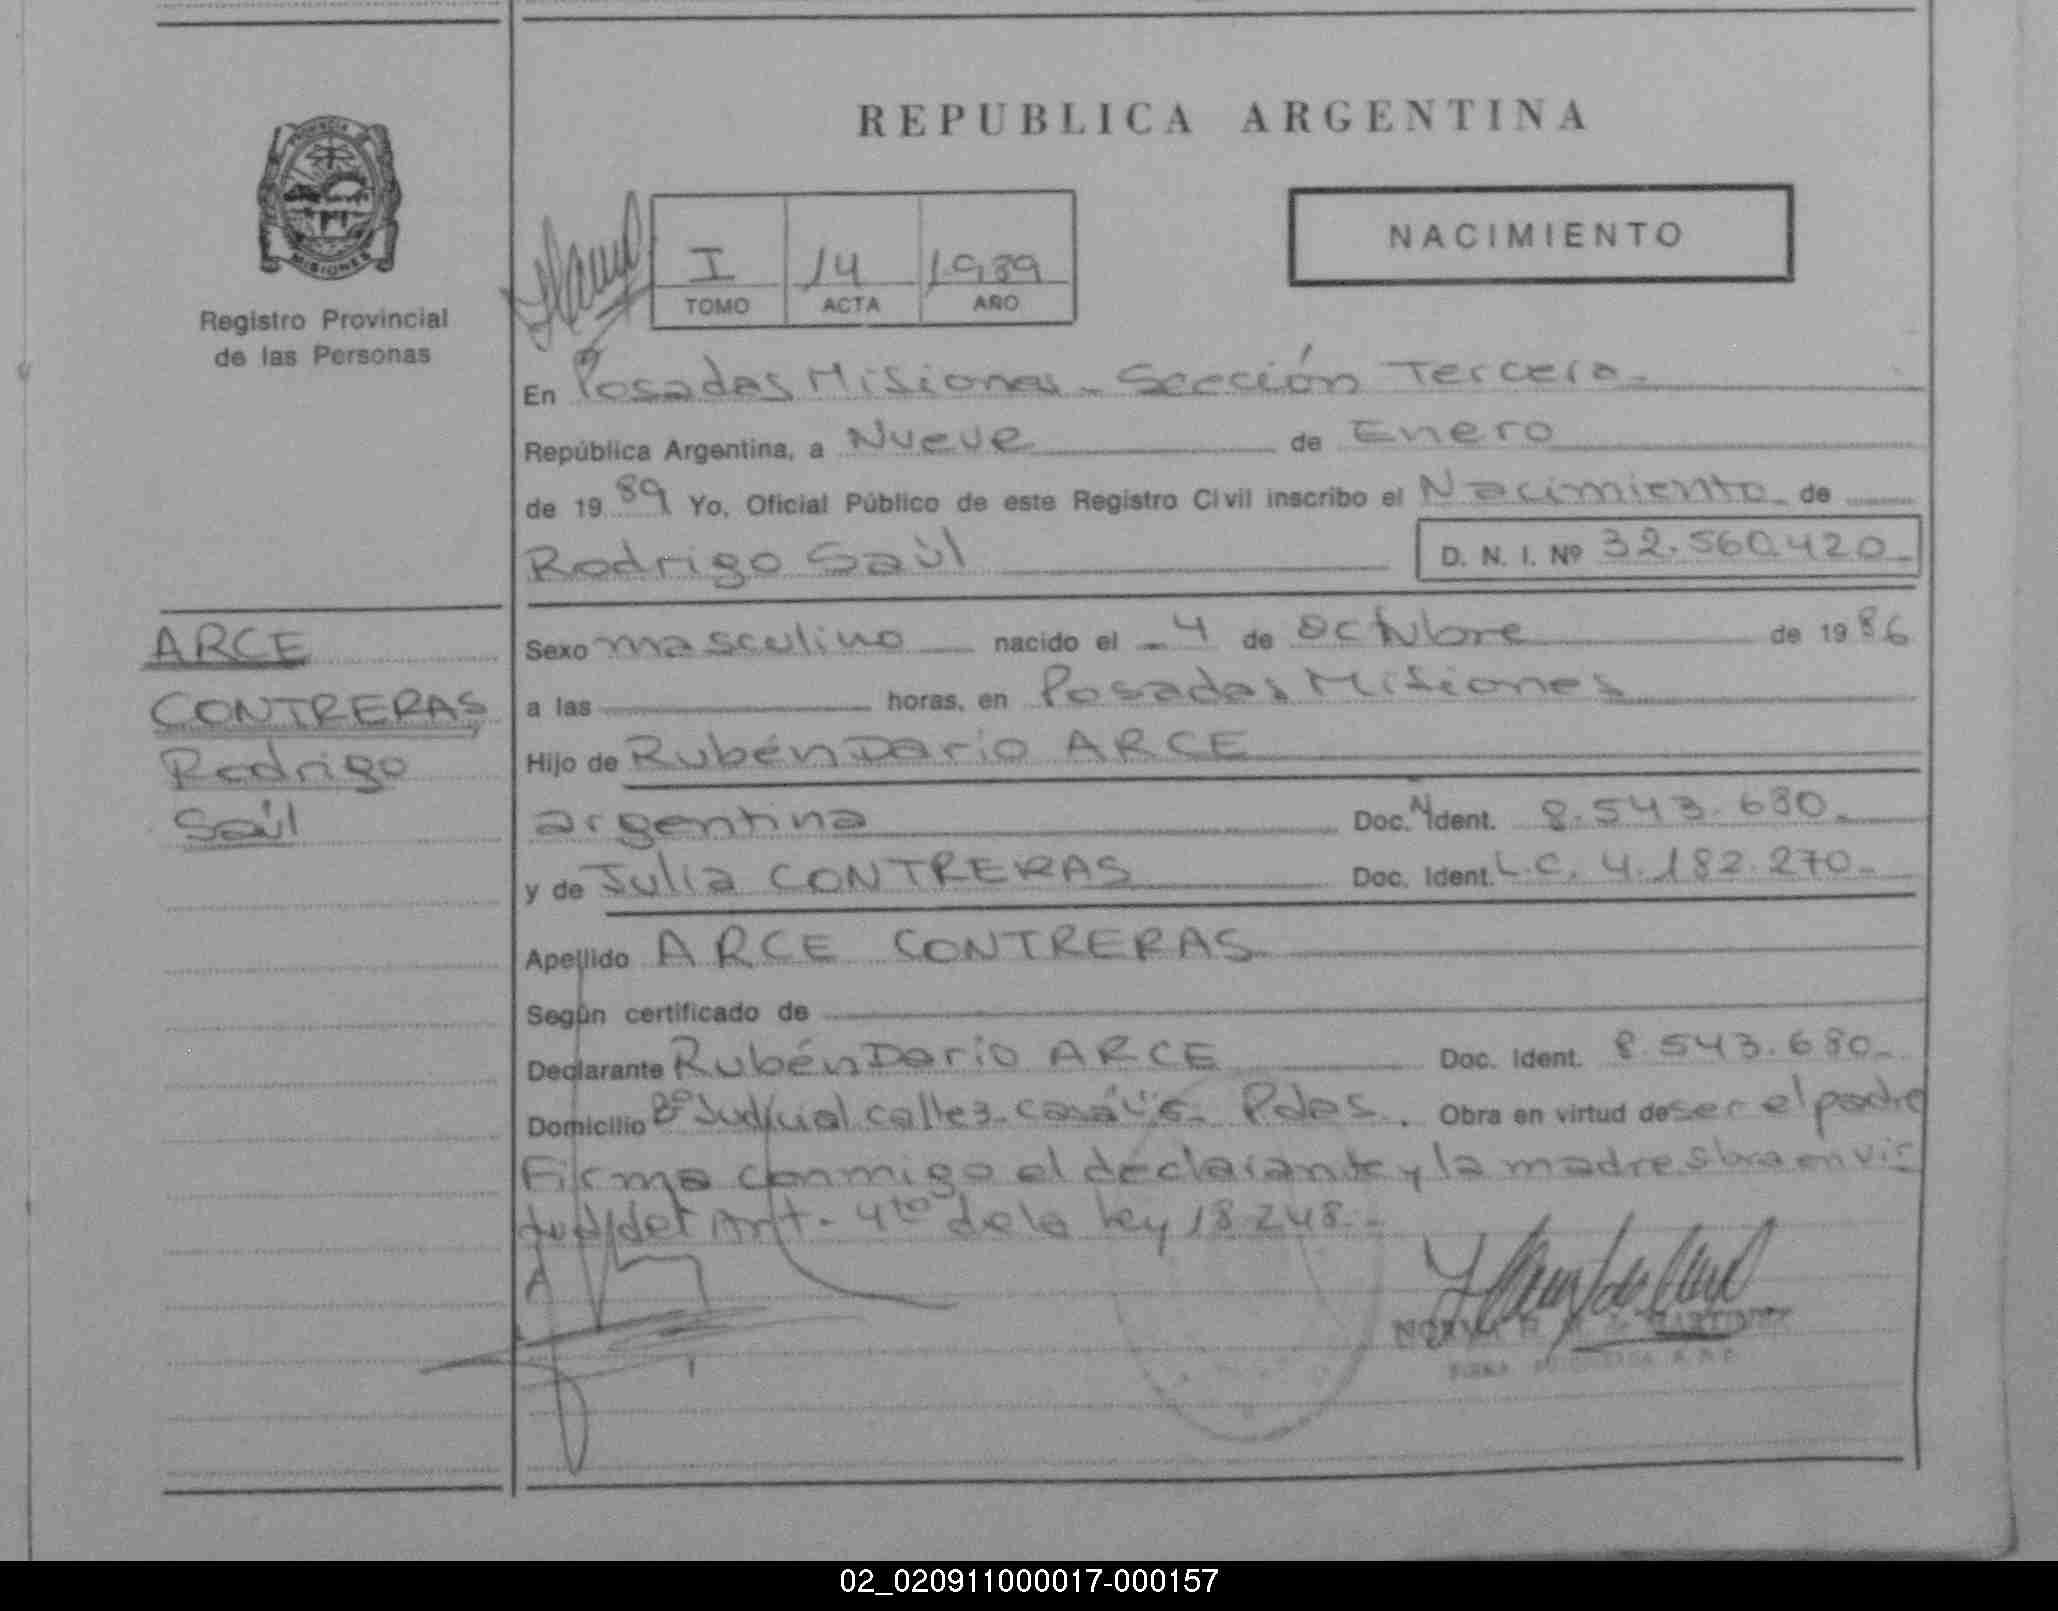 REPUBLICA ARGENTINA
PROVINCIA DE
MISIONES
Registro Provincial
de las Personas
I 14 1989
TOMO ACTA AÑO
NACIMIENTO
En Posadas Misiones - Sección Tercera -
República Argentina, a Nueve de Enero
de 19 89 Yo, Oficial Público de este Registro Civil inscribo el Nacimiento de
Rodrigo Saúl D. N. I. Nº 32.560.420 -
ARCE
CONTRERAS,
Rodrigo
Saúl
Sexo masculino nacido el - 4 de Octubre de 19 86
a las horas, en Posadas Misiones
Hijo de Rubén Dario ARCE
argentina Doc. N Ident. 8.543.680 -
y de Julia CONTRERAS Doc. Ident. L.C. 4.182.270 -
Apellido ARCE CONTRERAS
Según certificado de
Declarante Rubén Dario ARCE Doc. Ident. 8.543.680 -
Domicilio Bº Judicial calle 3 - casa - Pdas. Obra en virtud de ser el padre
Firma conmigo el declarante y la madre obra en vir
tud del Art. 4to de la ley 18.248 -
02_020911000017-000157